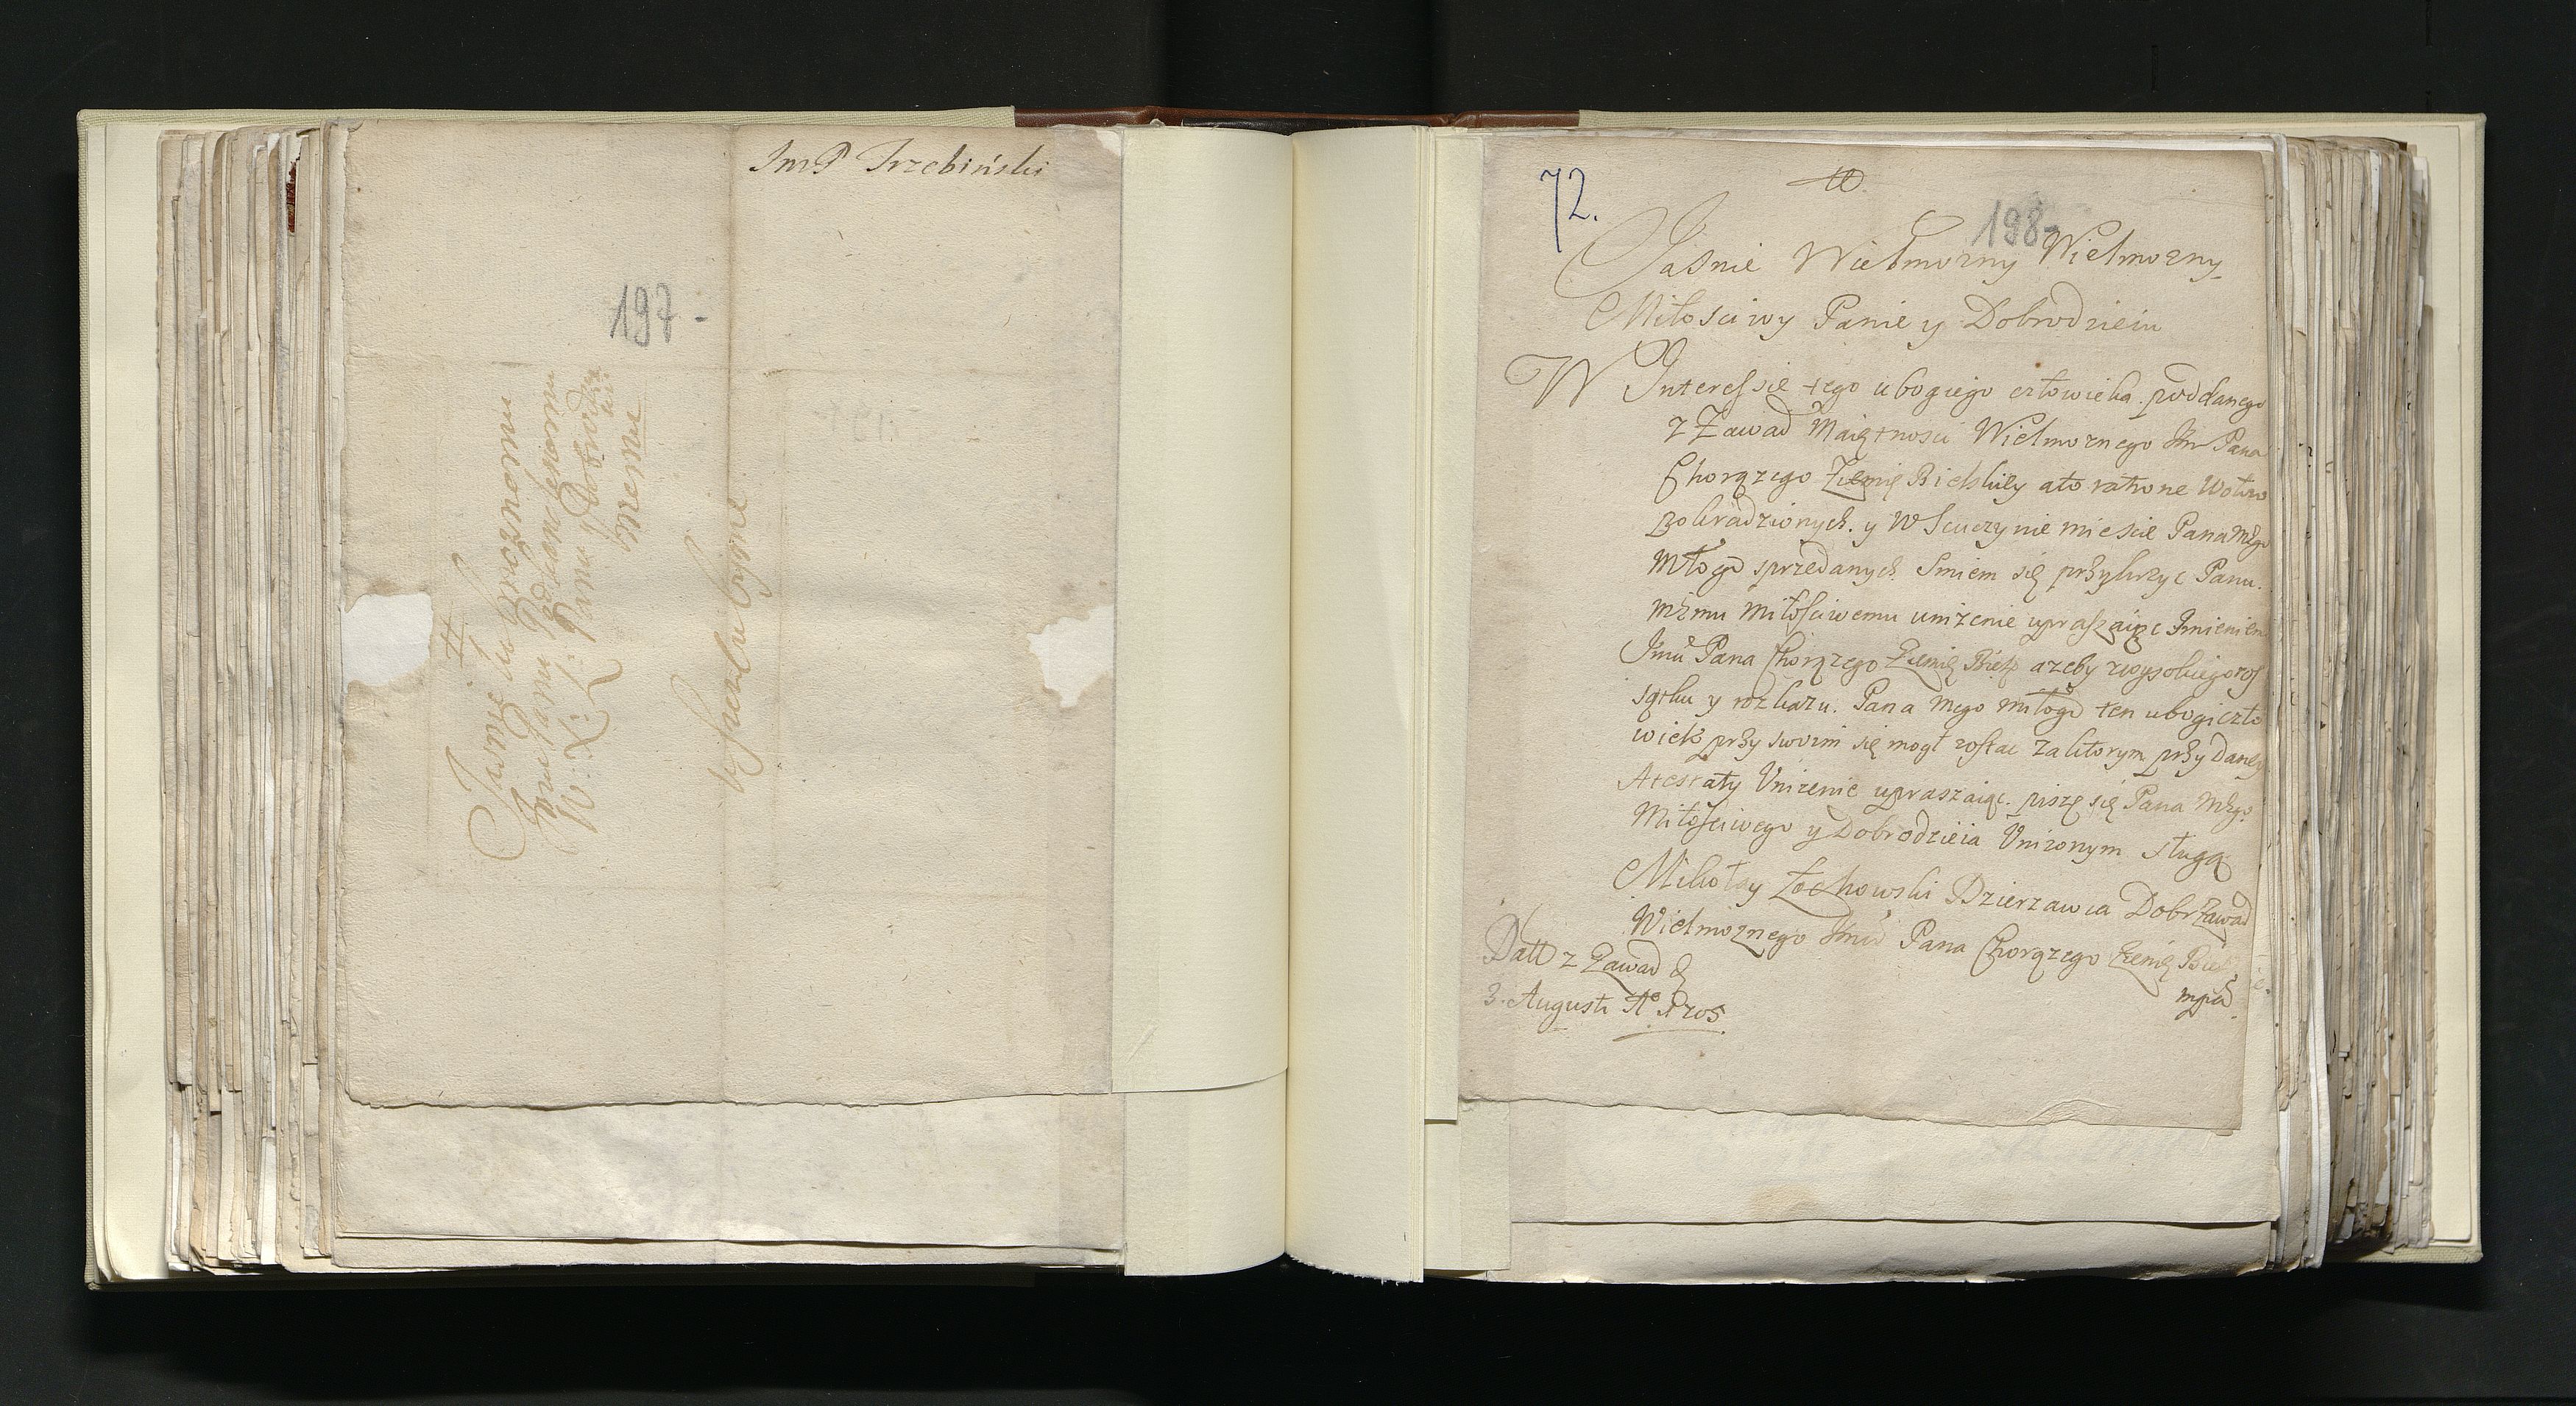 ImP Trzebiński
197-
Jasnie Wielmoznemu
Jmc Panu Podkanclerzemu
W: X: L: Panu y Dobrodzie
iowi
memu
72.
198-
Jasnie Wielmozny Wielmozny
Miłosciwy Panie y Dobrodzieiu
W Interessie tego ubogiego człowieka poddanego
z Zawad Maiętnosci Wielmoznego Jm Pana
Chorązego Ziemię Bielskiey ato ratione Wołow
pokradzionych. y W Scuczynie miescie Pana Mego
Młogo sprzedanych Smiem się przykrzyc Panu.
memu Miłosciwemu unizenie upraszaiąc Imieniem
Jmci Pana Chorązego Ziemię Bielz azeby zwysokiego ros
sątku y rozkazu. Pana mego miłogo ten ubogi czło
wiek przy swoim się mogł zostac za ktorym przy daney
Atestaty Unizenie upraszaiąc. piszę się Pana Mego
Miłosciwego y Dobrodzieia Unizonym sługą
Mikołay Zochowski Dzierzawca Dobr Zawad
Wielmoznego Jmci Pana Chorązego Ziemię Biel
mpd
Datt z Zawad d
3. Augusti A° 1705